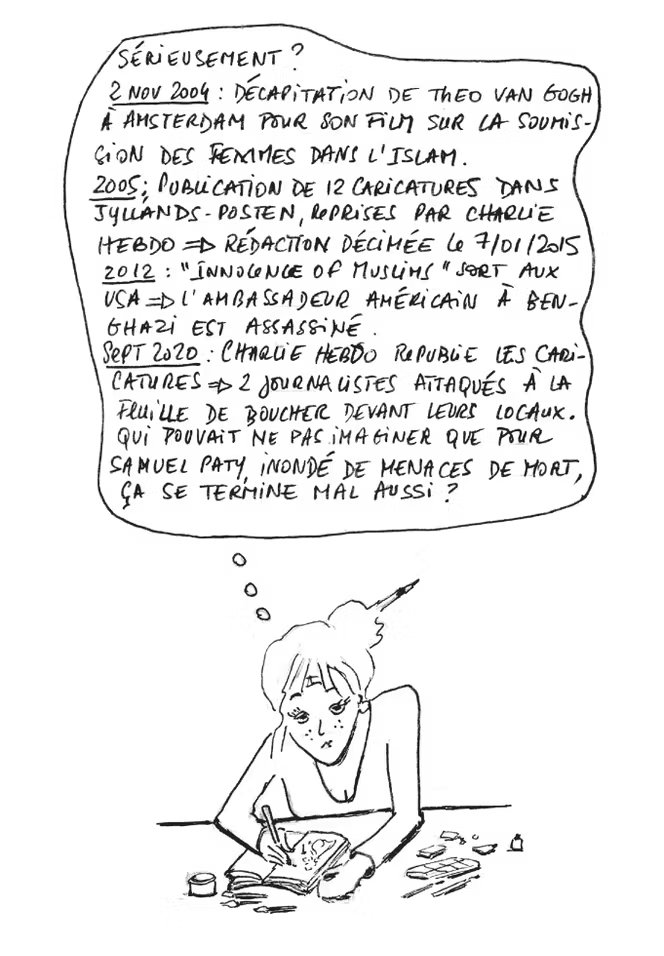 SÉRIEUSEMENT ?
2 NOV 2004 : DÉCAPITATION DE THEO VAN GOGH
À AMSTERDAM POUR SON FILM SUR LA SOUMIS-
SION DES FEMMES DANS L'ISLAM.
2005 : PUBLICATION DE 12 CARICATURES DANS
JYLLANDS-POSTEN, REPRISES PAR CHARLIE
HEBDO ⇒ RÉDACTION DÉCIMÉE LE 7/01/2015
2012 : "INNOCENCE OF MUSLIMS" SORT AUX
USA ⇒ L'AMBASSADEUR AMÉRICAIN À BEN-
GHAZI EST ASSASSINÉ.
SEPT 2020 : CHARLIE HEBDO REPUBLIE LES CARI-
CATURES ⇒ 2 JOURNALISTES ATTAQUÉS À LA
FEUILLE DE BOUCHER DEVANT LEURS LOCAUX.
QUI POUVAIT NE PAS IMAGINER QUE POUR
SAMUEL PATY, INONDÉ DE MENACES DE MORT,
ÇA SE TERMINE MAL AUSSI ?